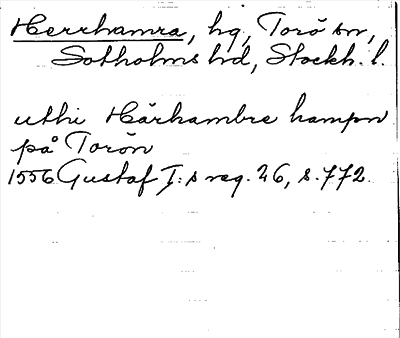 Herrhamra, hg, Torö sn,
Sotholms hd, Stockh. l.
uthi Hårhambre hampn
på Torön
1556 Gustaf I:s reg. 26, s. 772.